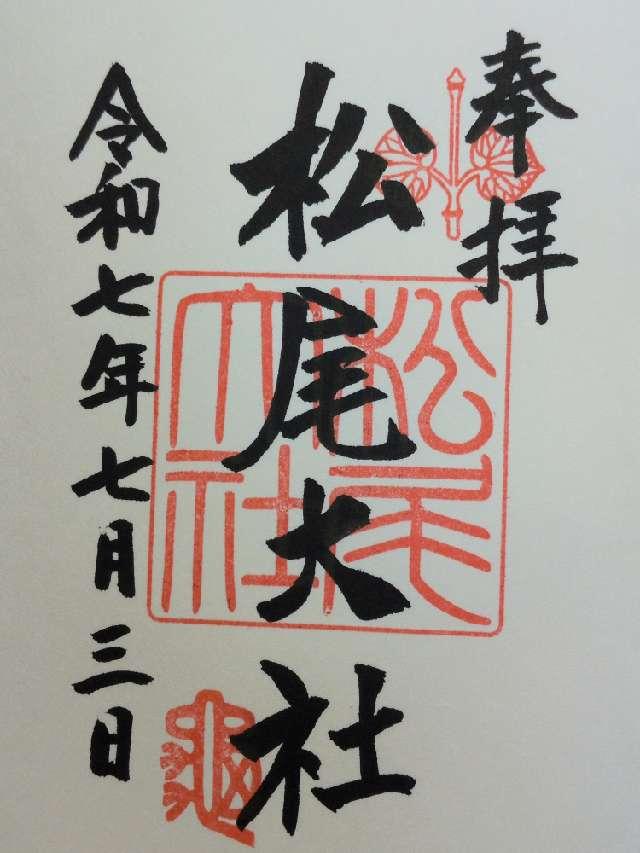 奉拝
松尾大社
松尾大社
亀
令和七年七月三日